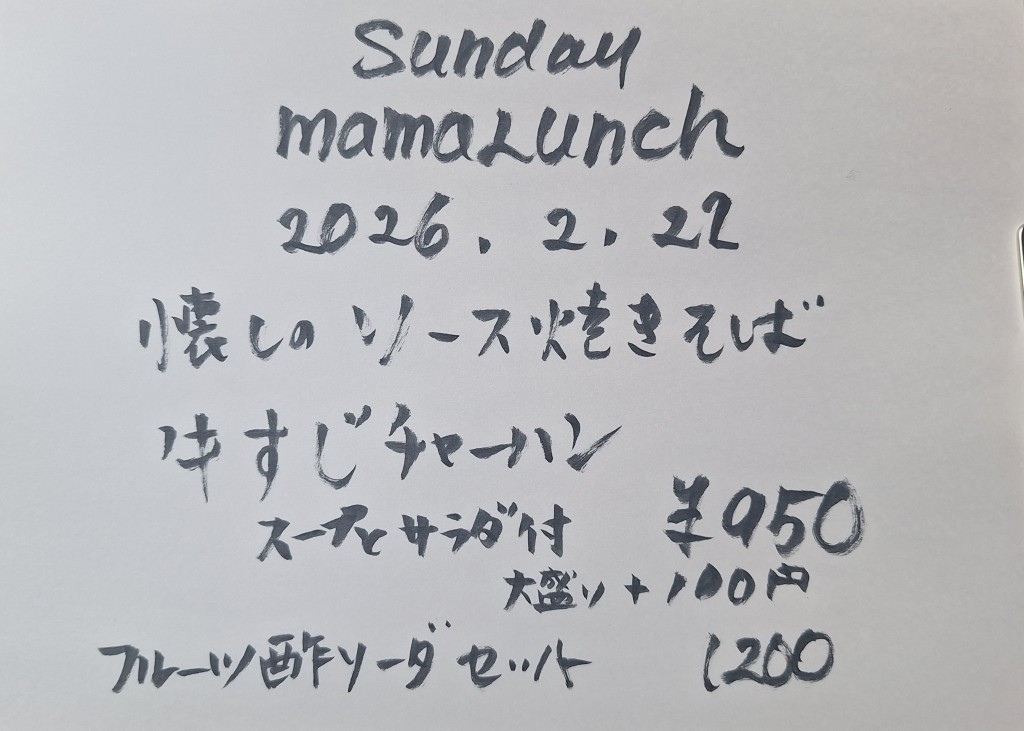 Sunday
mamaLunch
2026.2.22
懐しの ソース焼きそば
牛すじチャーハン
スープとサラダ付 ¥950
大盛り+100円
フルーツ酢ソーダセット 1200